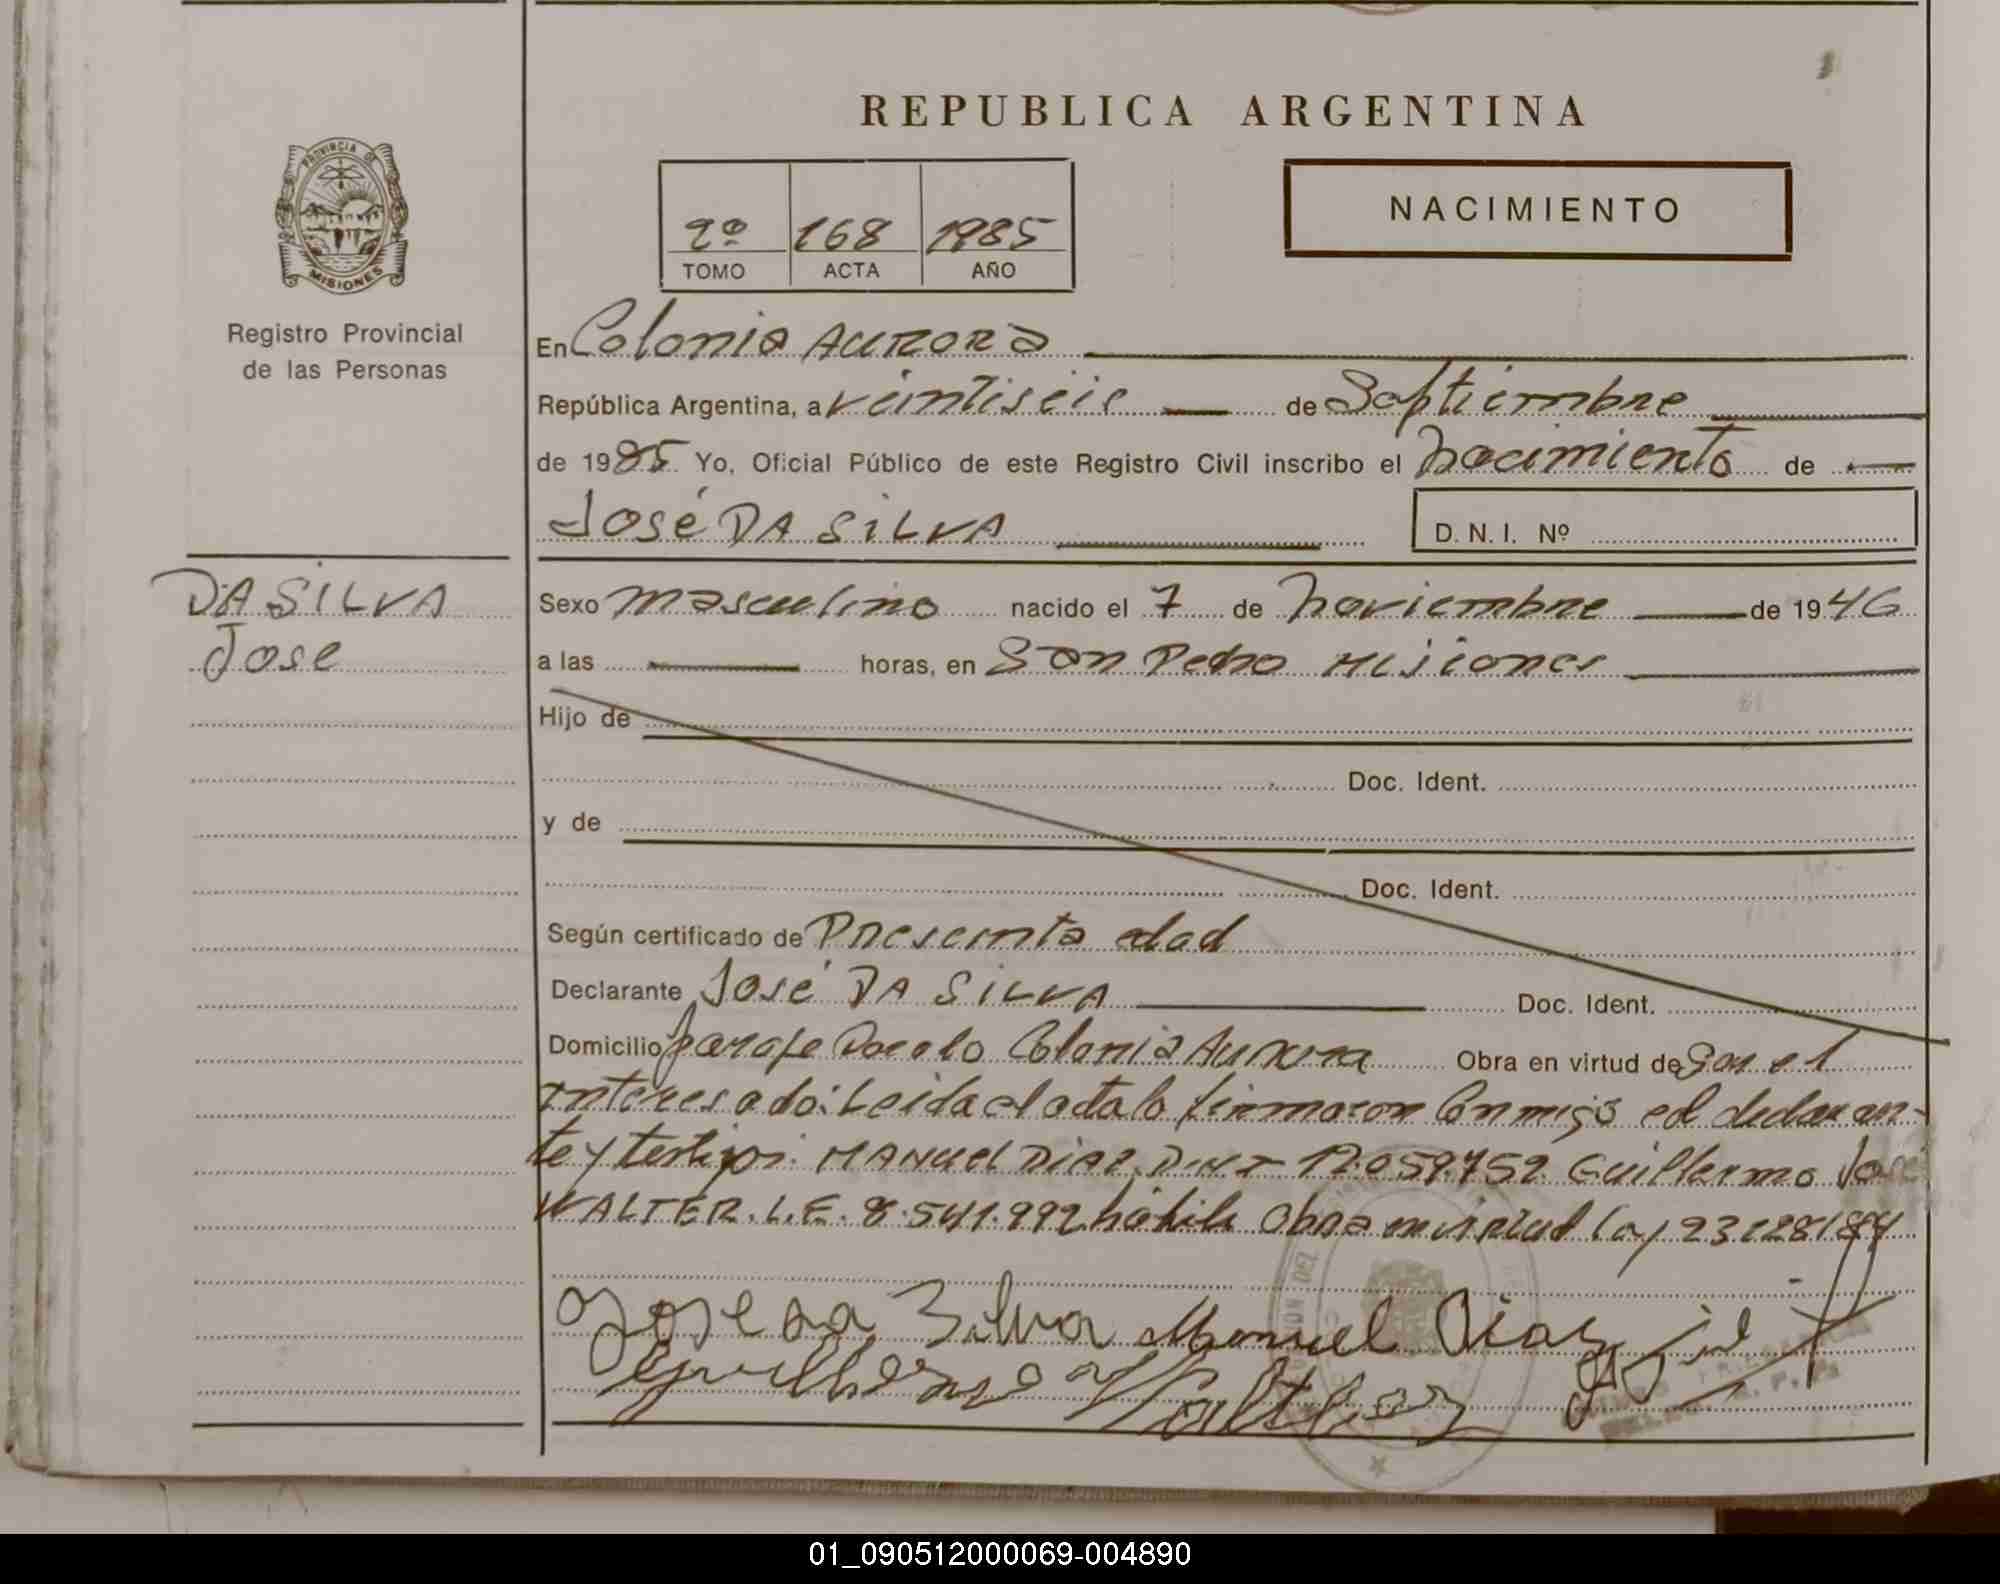 REPUBLICA ARGENTINA
PROVINCIA DE
MISIONES
Registro Provincial
de las Personas
2º 168 1985
TOMO ACTA AÑO
NACIMIENTO
En Colonia Aurora
República Argentina, a veintiseis de Septiembre
de 1985 Yo, Oficial Público de este Registro Civil inscribo el nacimiento de
José DA SILVA D. N. I. Nº
DA SILVA
Jose
Sexo masculino nacido el 7 de noviembre de 1946
a las horas, en San Pedro Misiones
Hijo de
Doc. Ident.
y de
Doc. Ident.
Según certificado de Presenta edad
Declarante José DA SILVA Doc. Ident.
Domicilio paraje Colonia Aurora Obra en virtud de por el
interesado: Leida el acta la firmaron conmigo el declaran-
te y testigos: MANUEL DIAZ, D.N.I 17.059.752 Guillermo José
WALTER. L.E. 8.541.992 hábiles Obra en virtud Ley 23128/84
Jose da Silva Manuel Diaz
Guilhermo Walter
01_090512000069-004890